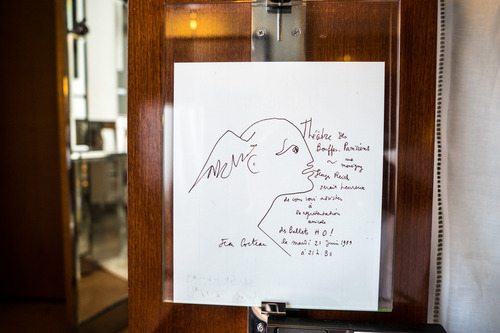 Théâtre des
Bouffes Parisiens
rue
monsigny
Serge Reid
serait heureux
de vous voir assister
à
la représentation
amicale
des Ballets H O !
le mardi 21 juin 1959
à 21 h 30
Jean Cocteau